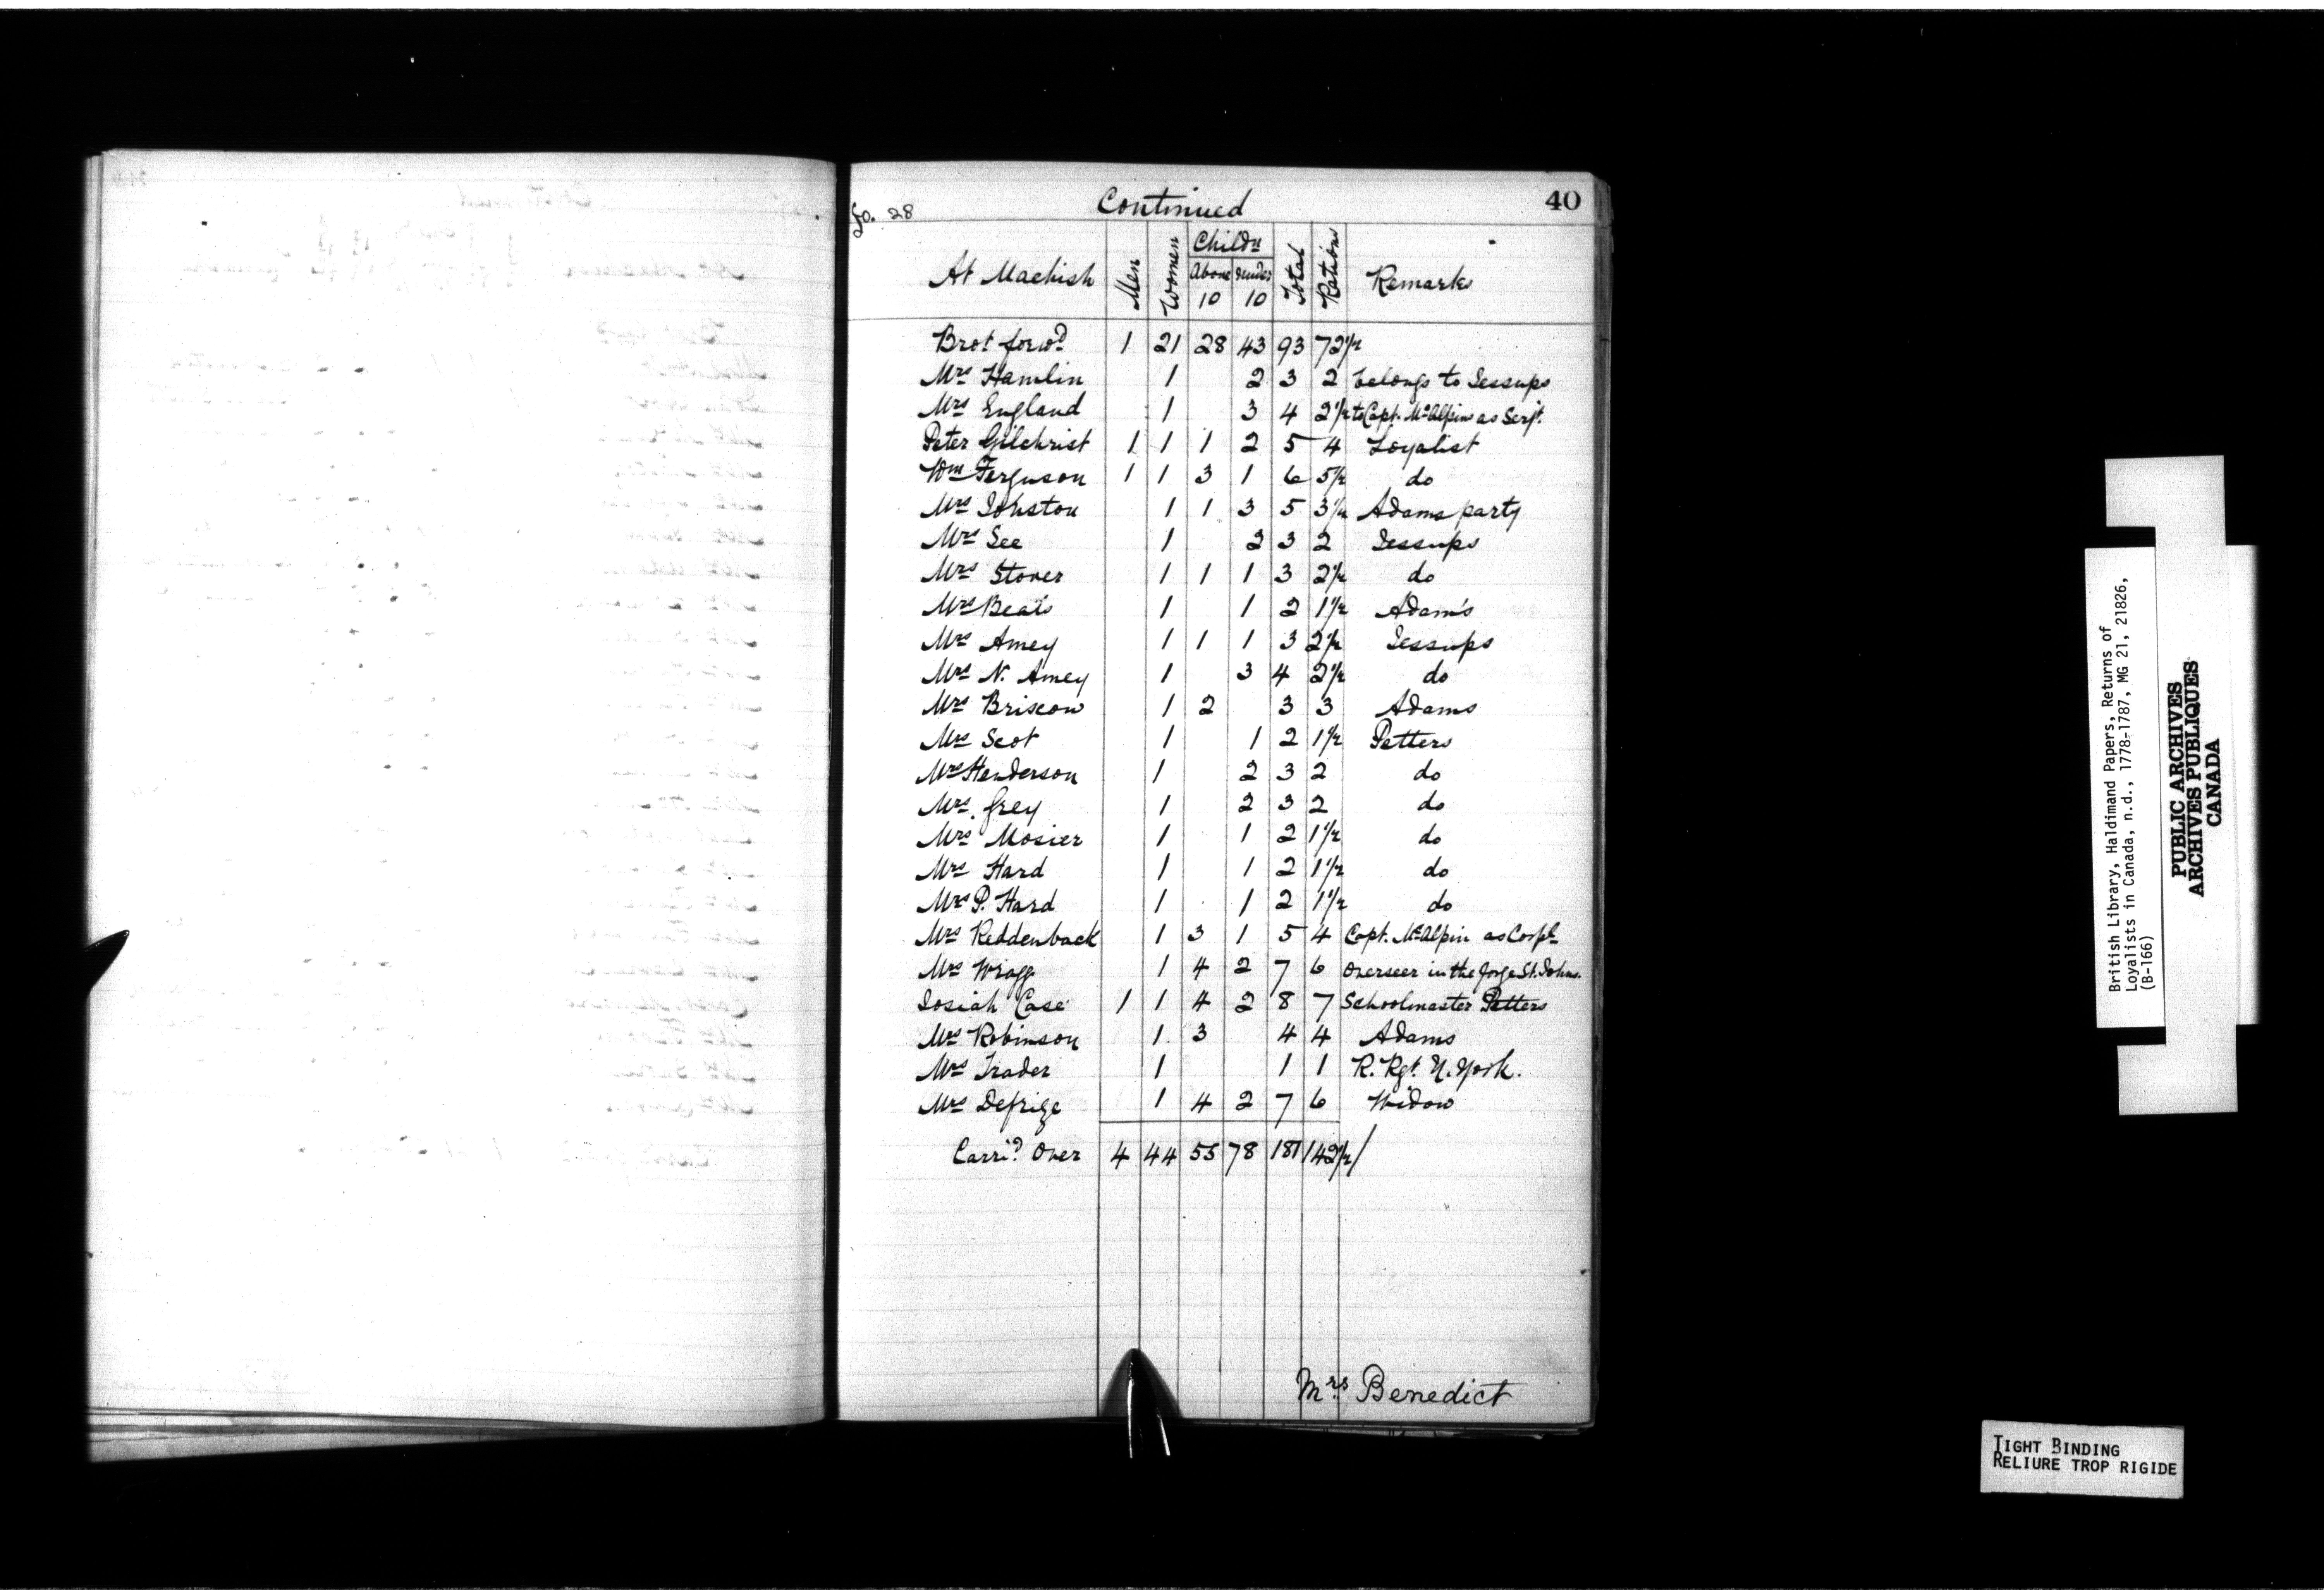 fo. 28 Continued 40
At Machish Men Women Childn Above 10 under 10 Total Rations Remarks
Brot forwd 1 21 28 43 93 72 1/2
Mrs Hamlin 1 2 3 2 belongs to Jessups
Mrs England 1 3 4 2 1/2 to Capt. McAlpin as Serjt.
Peter Gilchrist 1 1 1 2 5 4 Loyalist
Wm Ferguson 1 1 3 1 6 5 1/2 do
Mrs Johston 1 1 3 5 3 1/2 Adams party
Mrs See 1 2 3 2 Jessups
Mrs Stover 1 1 1 3 2 1/2 do
Mrs Beats 1 1 2 1 1/2 Adam's
Mrs Amey 1 1 1 3 2 1/2 Jessups
Mrs N. Amey 1 3 4 2 1/2 do
Mrs Briscow 1 2 3 3 Adams
Mrs Scot 1 1 2 1 1/2 Petters
Mrs Henderson 1 2 3 2 do
Mrs. Grey 1 2 3 2 do
Mrs Mosier 1 1 2 1 1/2 do
Mrs Hard 1 1 2 1 1/2 do
Mrs P. Hard 1 1 2 1 1/2 do
Mrs Reddenback 1 3 1 5 4 Capt. McAlpin as Corpl
Mrs Wragg 1 4 2 7 6 Overseer in the forge St. Johns.
Josiah Case 1 1 4 2 8 7 Schoolmaster Petters
Mrs Robinson 1 3 4 4 Adams
Mrs Trader 1 1 1 R. Rgt. N. York.
Mrs Defrige 1 4 2 7 6 Widow
Carrid Over 4 44 55 78 181 142 1/2 /
Mrs Benedict
British Library, Haldimand Papers, Returns of
Loyalists in Canada, n.d., 1778-1787, MG 21, 21826,
(B-166)
PUBLIC ARCHIVES
ARCHIVES PUBLIQUES
CANADA
TIGHT BINDING
RELIURE TROP RIGIDE